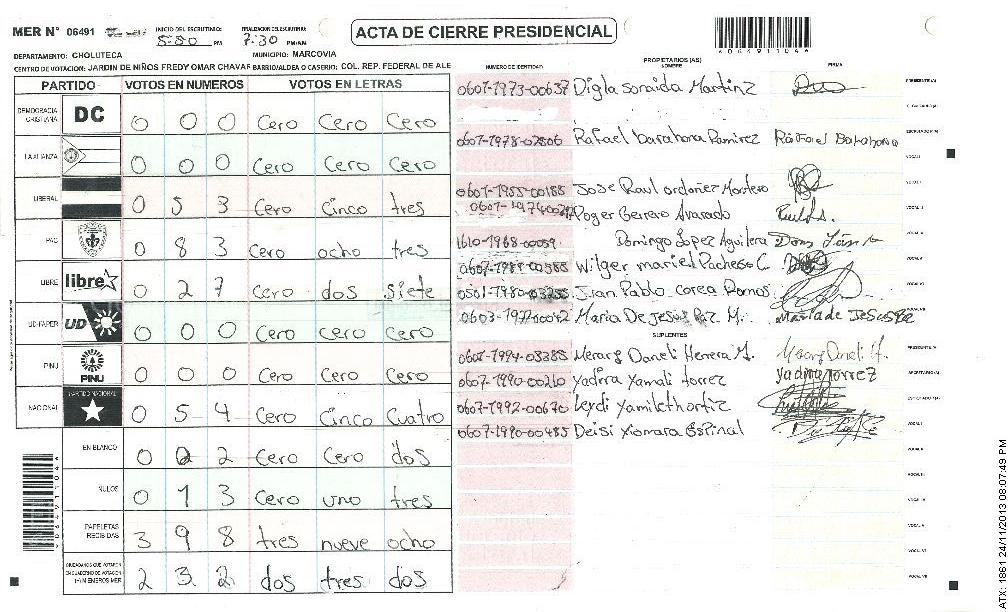 MER N° 06491
INICIO DEL ESCRUTINIO: 5:80 PM
FINALIZACION DEL ESCRUTINIO: 7:30 PM/AM
ACTA DE CIERRE PRESIDENCIAL
DEPARTAMENTO: CHOLUTECA MUNICIPIO: MARCOVIA
CENTRO DE VOTACION: JARDIN DE NIÑOS FREDY OMAR CHAVAR BARRIO/ALDEA O CASERIO: COL. REP. FEDERAL DE ALE
PARTIDO VOTOS EN NUMEROS VOTOS EN LETRAS
DEMOCRACIA CRISTIANA DC 0 0 0 Cero Cero Cero
LA ALIANZA 0 0 0 Cero Cero Cero
LIBERAL 0 5 3 Cero Cinco tres
PAC 0 8 3 Cero ocho tres
LIBRE libre 0 2 7 Cero dos siete
UD-FAPER UD 0 0 0 Cero Cero Cero
PINU PINU 0 0 0 Cero Cero Cero
NACIONAL PARTIDO NACIONAL 0 5 4 Cero Cinco Cuatro
EN BLANCO 0 0 2 Cero Cero dos
NULOS 0 1 3 Cero uno tres
PAPELETAS RECIBIDAS 3 9 8 tres nueve ocho
CIUDADANOS QUE VOTARON 2 3 2 dos tres dos
NUMERO DE IDENTIDAD PROPIETARIOS (AS) NOMBRE FIRMA
0607-1973-00637 Digla soraida Martinez PRESIDENTE (A)
0607-1978-02806 Rafael barahona Ramirez Rafael Barahona
0607-1955-00188 Jose Raul ordoñez Montero
Roger Berrero Alvarado
1610-1968-00059 Domingo Lopez Aguilera
Wilger mariel Pacheco C.
0501-1980-03255 Juan Pablo corea Ramos
0603-1977-00042 Maria De Jesus Paz M. Maria de Jesus Paz
SUPLENTES
0607-1994-03385 Merary Daneli Herrera M. Merary Daneli H. PRESIDENTE (A)
0607-1990-00210 yadira yamali torrez yadira torrez SECRETARIO (A)
0607-1992-00670 Leydi Yamileth ortiz
0607-1990-00485 Deisi xiomara Espinal
ATX: 1861 24/11/2013 08:07:49 PM